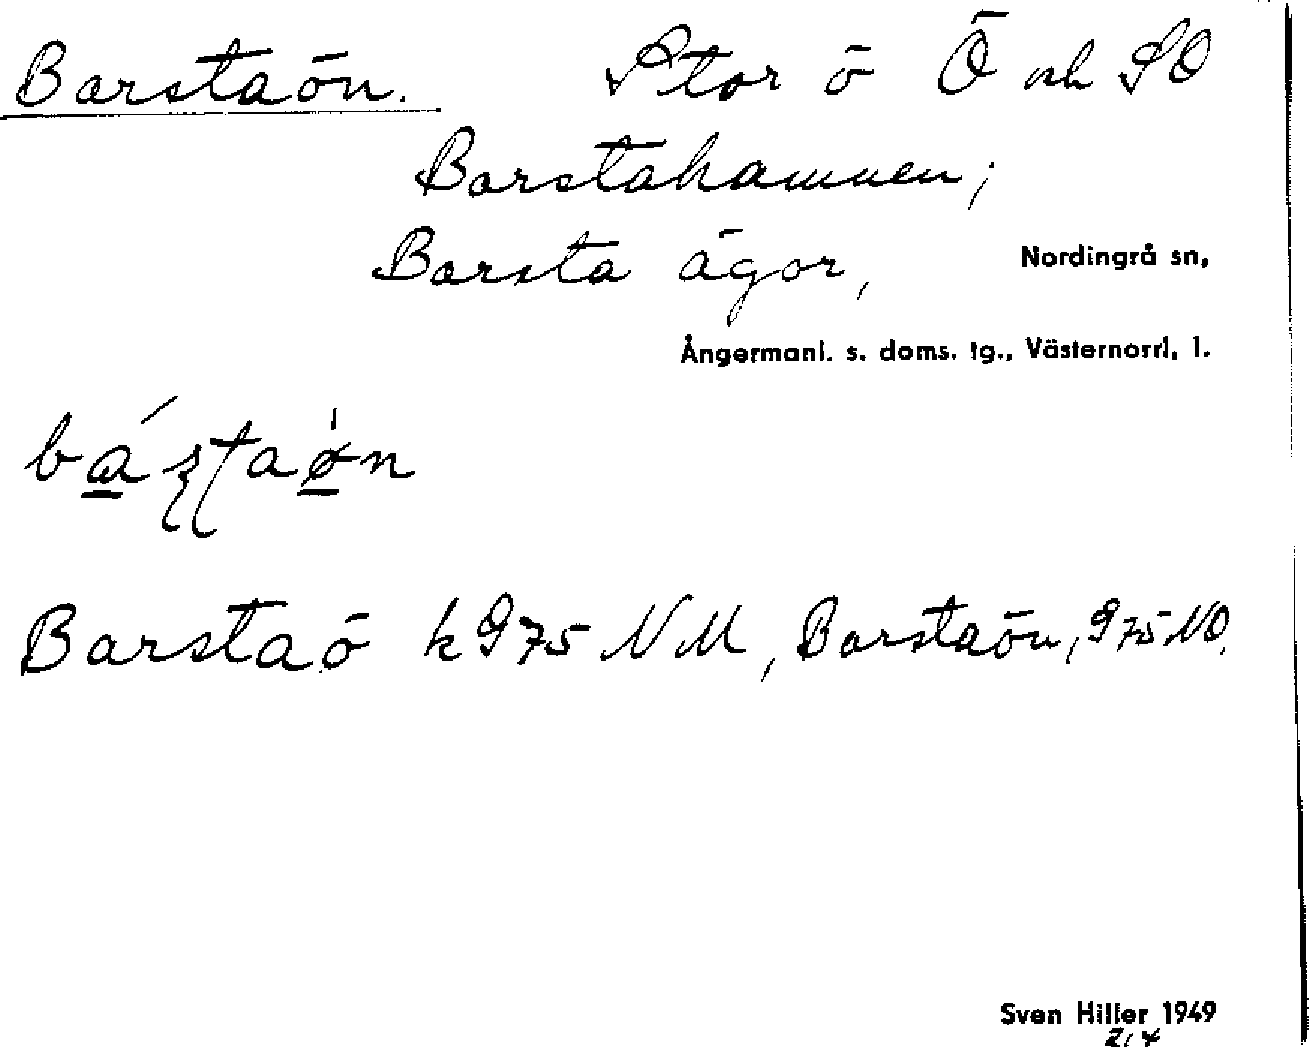 Barstaön. Stor ö Ö och SO
Barstahamnen;
Barsta ägor, Nordingrå sn,
Ångermanl. s. doms. tg., Västernorrl. l.
Barstaö k 975 NM, Barstaön, 975 NO.
Sven Hiller 1949